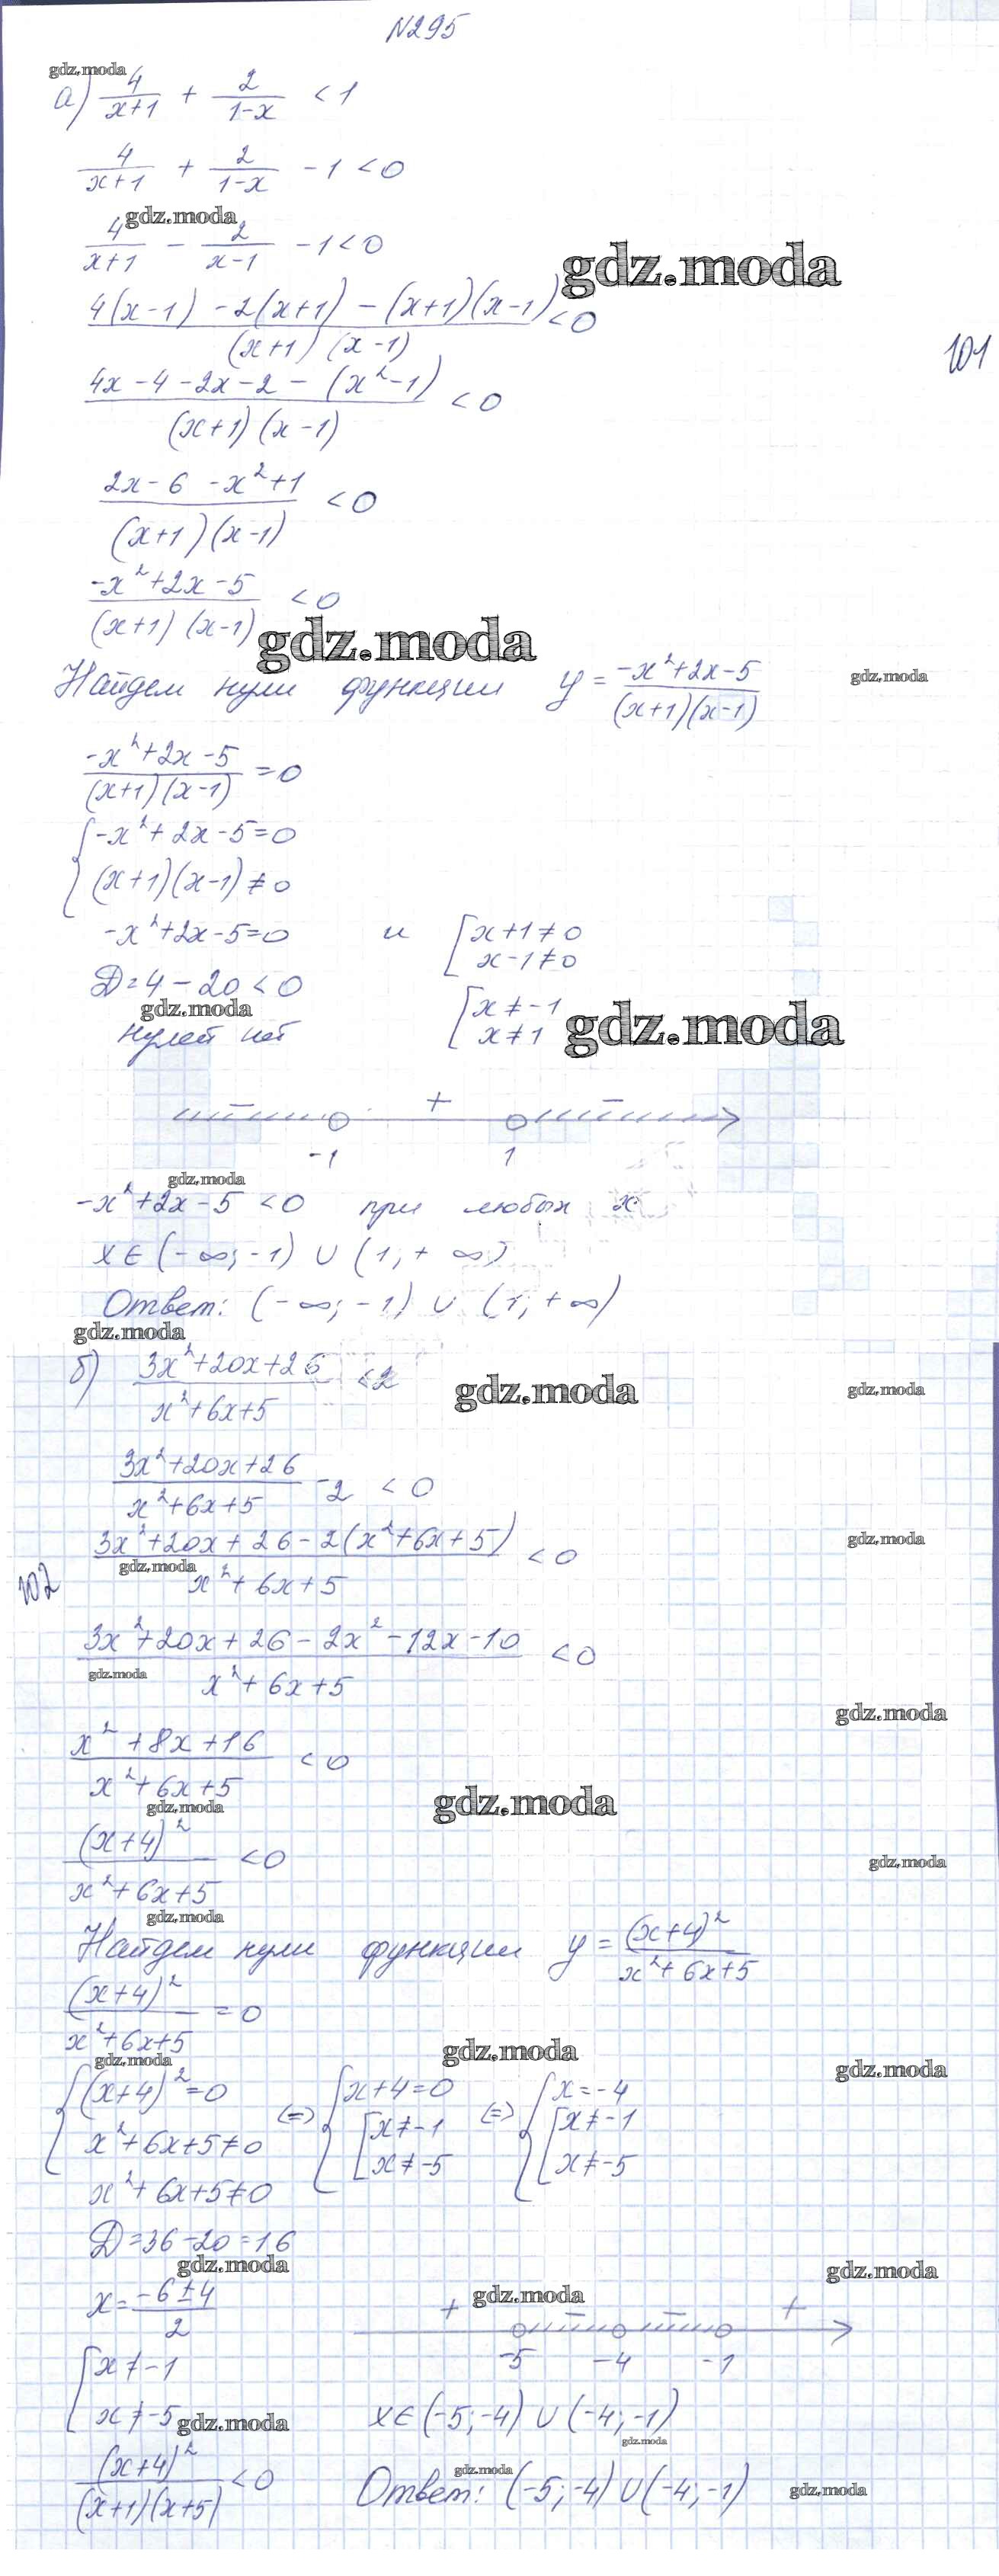 N295
gdz.moda
а) 4/(x+1) + 2/(1-x) < 1
4/(x+1) + 2/(1-x) - 1 < 0
gdz.moda
4/(x+1) - 2/(x-1) - 1 < 0
gdz.moda
(4(x-1) - 2(x+1) - (x+1)(x-1))/((x+1)(x-1)) < 0
101
(4x - 4 - 2x - 2 - (x²-1))/((x+1)(x-1)) < 0
(2x - 6 - x² + 1)/((x+1)(x-1)) < 0
(-x² + 2x - 5)/((x+1)(x-1)) < 0
gdz.moda
Найдем нули функции y = (-x²+2x-5)/((x+1)(x-1))
gdz.moda
(-x²+2x-5)/((x+1)(x-1)) = 0
{ -x² + 2x - 5 = 0
(x+1)(x-1) ≠ 0
-x²+2x-5=0 и [ x+1≠0
x-1≠0
D=4-20<0 [ x≠-1
gdz.moda
нулей нет x≠1
gdz.moda
- + -
-1 1
gdz.moda
-x²+2x-5 <0 при любых x
x∈(-∞; -1) ∪ (1; +∞)
Ответ: (-∞; -1) ∪ (1; +∞)
gdz.moda
б) (3x²+20x+26)/(x²+6x+5) < 2
gdz.moda
gdz.moda
(3x²+20x+26)/(x²+6x+5) - 2 < 0
(3x²+20x+26-2(x²+6x+5))/(x²+6x+5) < 0
gdz.moda
gdz.moda
102
(3x²+20x+26-2x²-12x-10)/(x²+6x+5) < 0
gdz.moda
gdz.moda
(x²+8x+16)/(x²+6x+5) < 0
gdz.moda
gdz.moda
(x+4)²/(x²+6x+5) < 0
gdz.moda
gdz.moda
Найдем нули функции y = (x+4)²/(x²+6x+5)
(x+4)²/(x²+6x+5) = 0
gdz.moda
gdz.moda
gdz.moda
{ (x+4)²=0 (=) { x+4=0 (=) { x=-4
x²+6x+5≠0 [ x≠-1 [ x≠-1
x≠-5 x≠-5
x²+6x+5≠0
D=36-20=16
gdz.moda
gdz.moda
x = (-6±4)/2
gdz.moda
+ - - +
-5 -4 -1
[ x≠-1
x≠-5
gdz.moda
x∈(-5;-4) ∪ (-4;-1)
gdz.moda
(x+4)²/((x+1)(x+5)) < 0
gdz.moda
Ответ: (-5;-4) ∪ (-4;-1)
gdz.moda